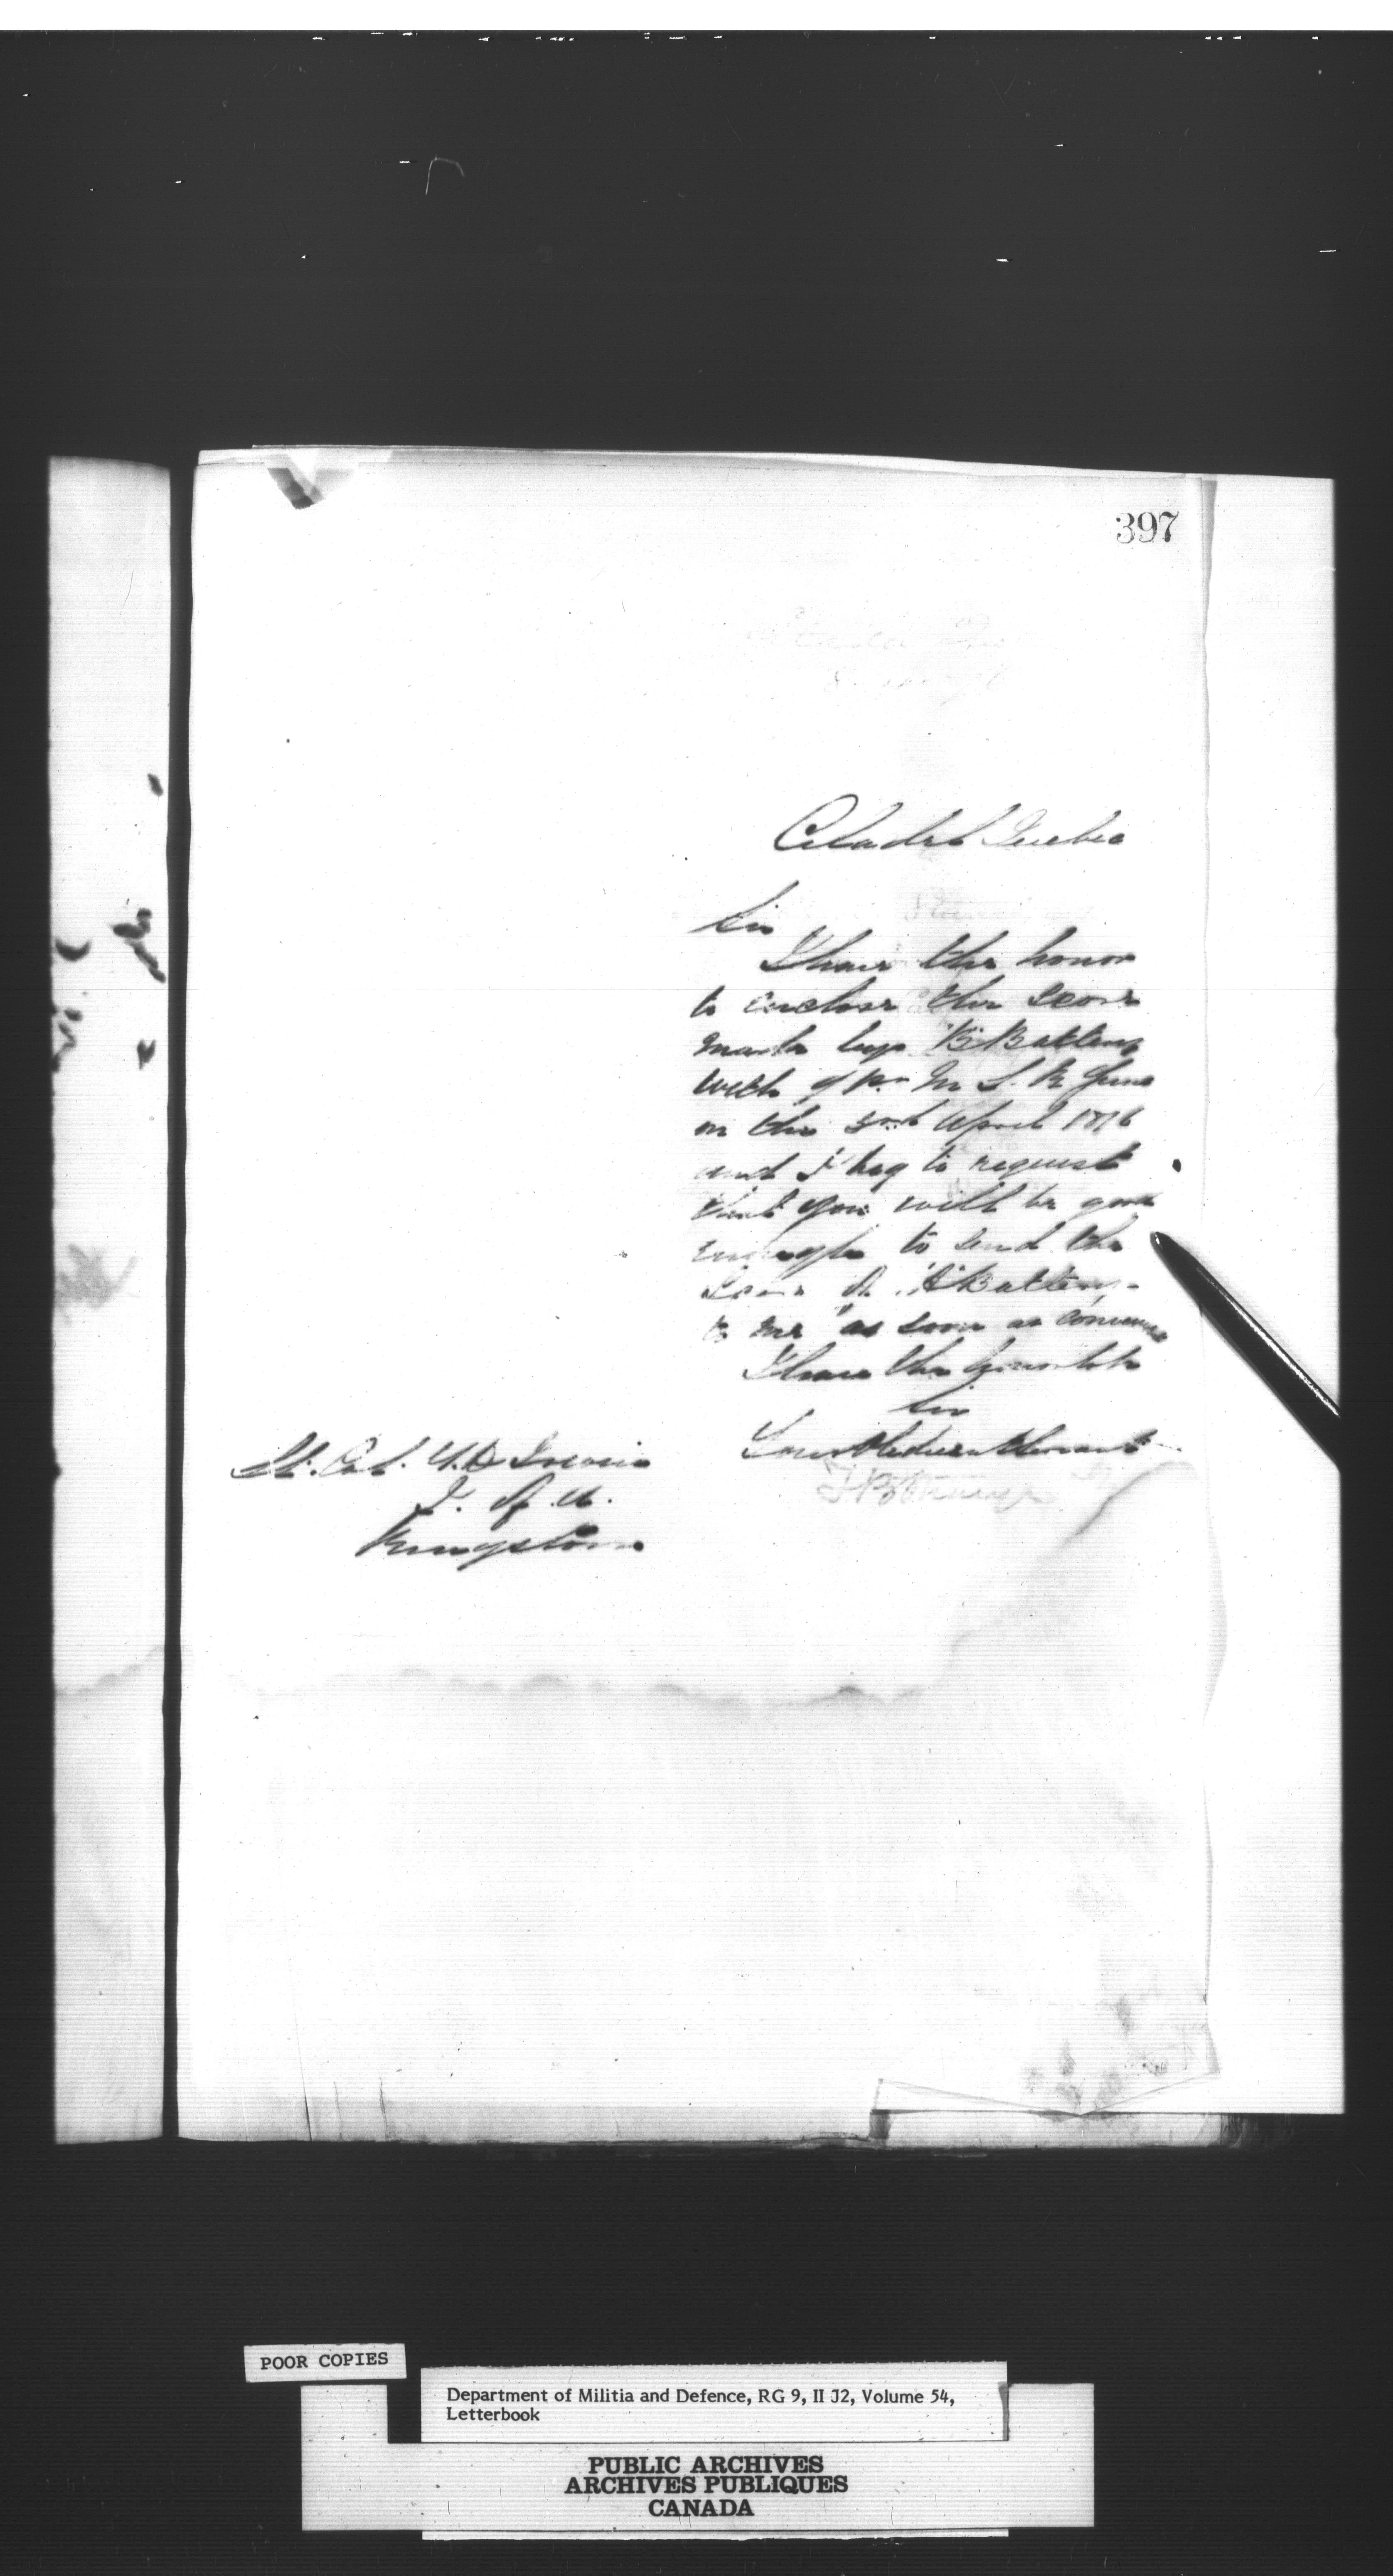 397
Citadel Quebec
Sir
I have the honor
to enclose the score
made by "B" Battery
with 9 Pr M. L. R Guns
on the 3rd April 1876
and I beg to request
that you will be good
enough to send the
Score of "A" Battery
to me as soon as
I have the honor to be
Sir
Your Obedient Servant
T B Strange
Lt. Col. D. T. Irwin
I. of A.
Kingston
POOR COPIES
Department of Militia and Defence, RG 9, II J2, Volume 54,
Letterbook
PUBLIC ARCHIVES
ARCHIVES PUBLIQUES
CANADA